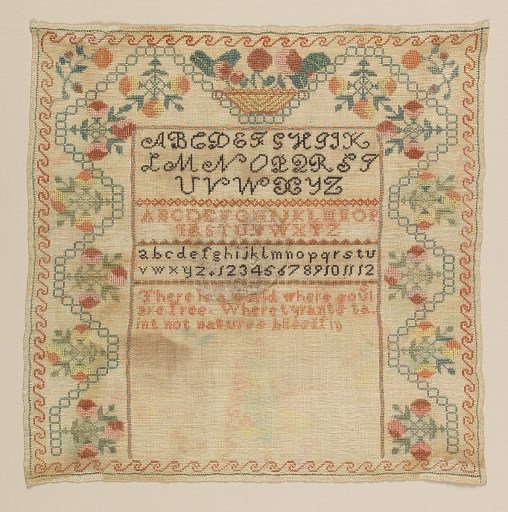 ABCDEFGHIJK
LMNOPQRST
UVWXYZ
ABCDEFGHIJKLMNOP
STUVWXYZ
abcdefghijklmnopqrstu
vwxyz.123456789101112
There is a world where souls
are free. Where tyrants ta
int not natures bliss